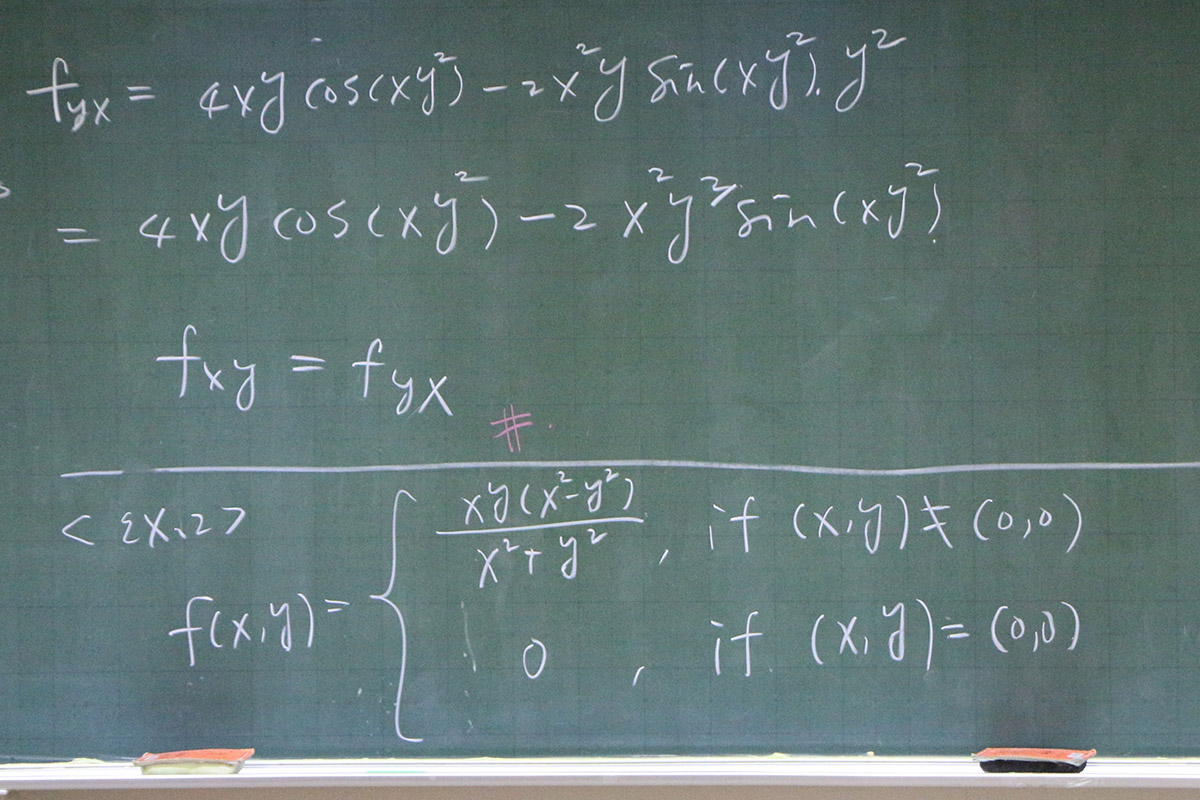 f_yx = 4xy cos(xy²) - 2x²y sin(xy²). y²
= 4xy cos(xy²) - 2x²y³ sin(xy²).
f_xy = f_yx #.
<Ex.2>
f(x,y) = { xy(x²-y²) / x²+y² , if (x,y) ≠ (0,0)
0 , if (x,y) = (0,0)